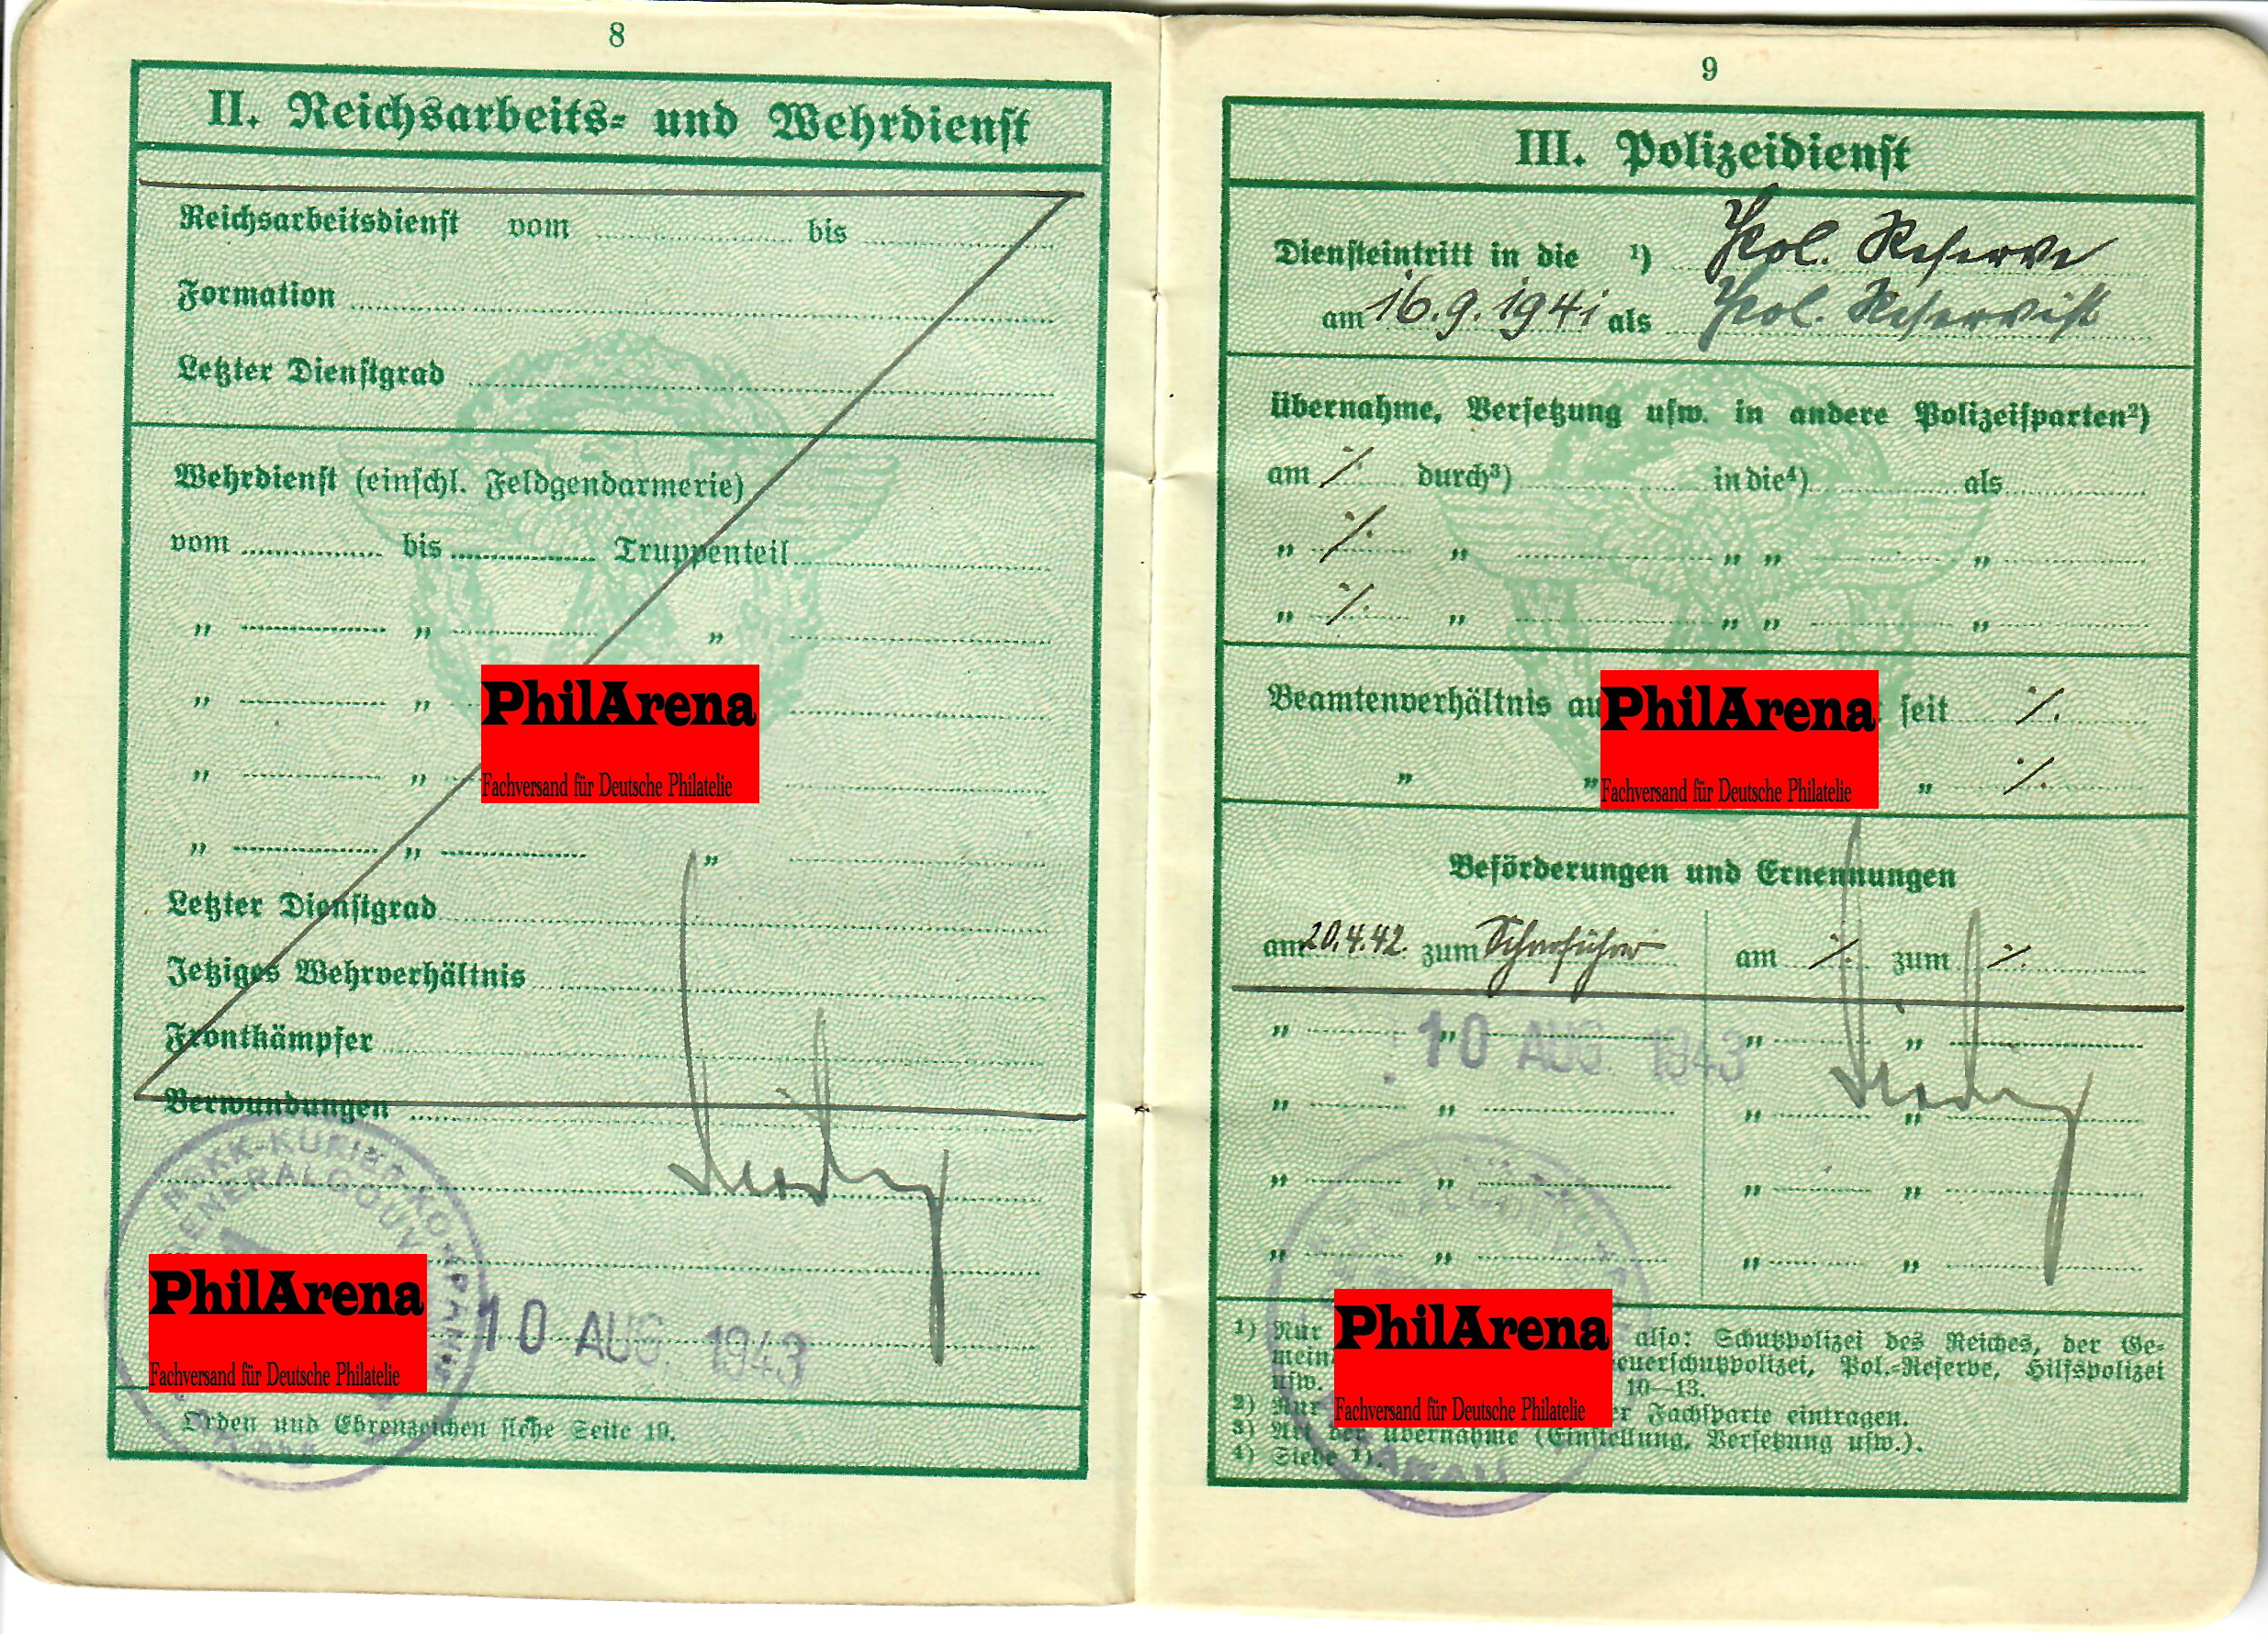 8
II. Reichsarbeits- und Wehrdienst
Reichsarbeitsdienst vom bis
Formation
Letzter Dienstgrad
Wehrdienst (einschl. Feldgendarmerie)
vom bis Truppenteil
„ „ „
„ „
„ „
„ „ „
PhilArena
Fachversand für Deutsche Philatelie
Letzter Dienstgrad
Jetziges Wehrverhältnis
Frontkämpfer
Verwundungen
NSKK-KURIER-KOMPANIE
GENERALGOUV
PhilArena
Fachversand für Deutsche Philatelie
10 AUG. 1943
Orden und Ehrenzeichen siehe Seite 19.
9
III. Polizeidienst
Diensteintritt in die ¹) Pol. Reserve
am 16.9.1941 als Pol. Reservist
Übernahme, Versetzung usw. in andere Polizeisparten²)
am ·/. durch³) in die⁴) als
„ ·/. „ „ „ „
„ ·/. „ „ „ „
Beamtenverhältnis au seit ·/.
„ „ „ ·/.
PhilArena
Fachversand für Deutsche Philatelie
Beförderungen und Ernennungen
am 20.4.42. zum Scharführer am ·/. zum ·/.
„ „ „ „
10 AUG. 1943
„ „ „ „
„ „ „ „
„ „ „ „
PhilArena
Fachversand für Deutsche Philatelie
¹) Nur also: Schutzpolizei des Reiches, der Ge-
mein euerschutzpolizei, Pol.-Reserve, Hilfspolizei
usw. 10—13.
²) Nur er Fachsparte eintragen.
³) Art der Übernahme (Einstellung, Versetzung usw.).
⁴) Siehe ¹).
AKAU